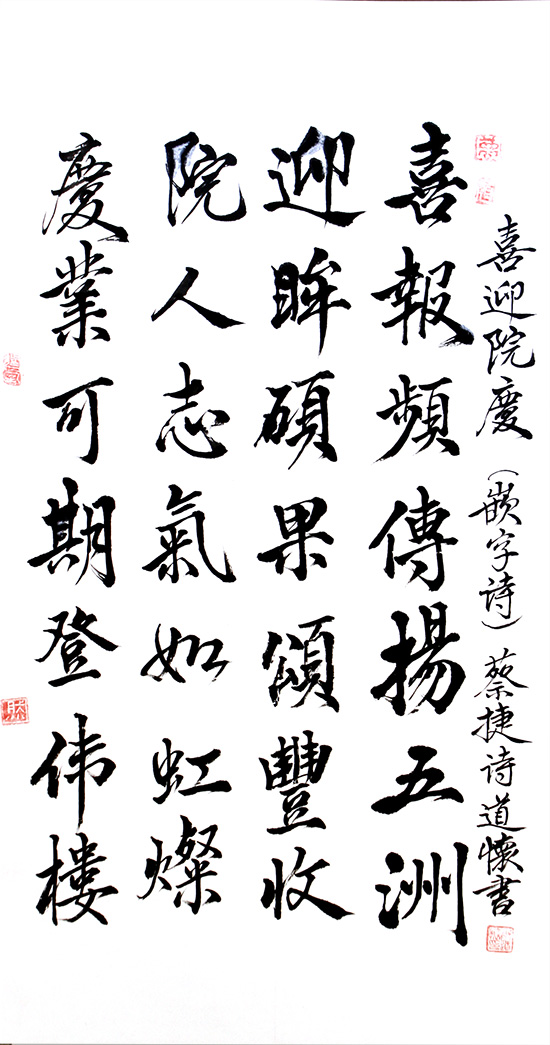 喜迎院慶（嵌字诗）蔡捷诗道懷書
喜報頻傳揚五洲
迎眸碩果頌豐收
院人志氣如虹燦
慶業可期登伟樓